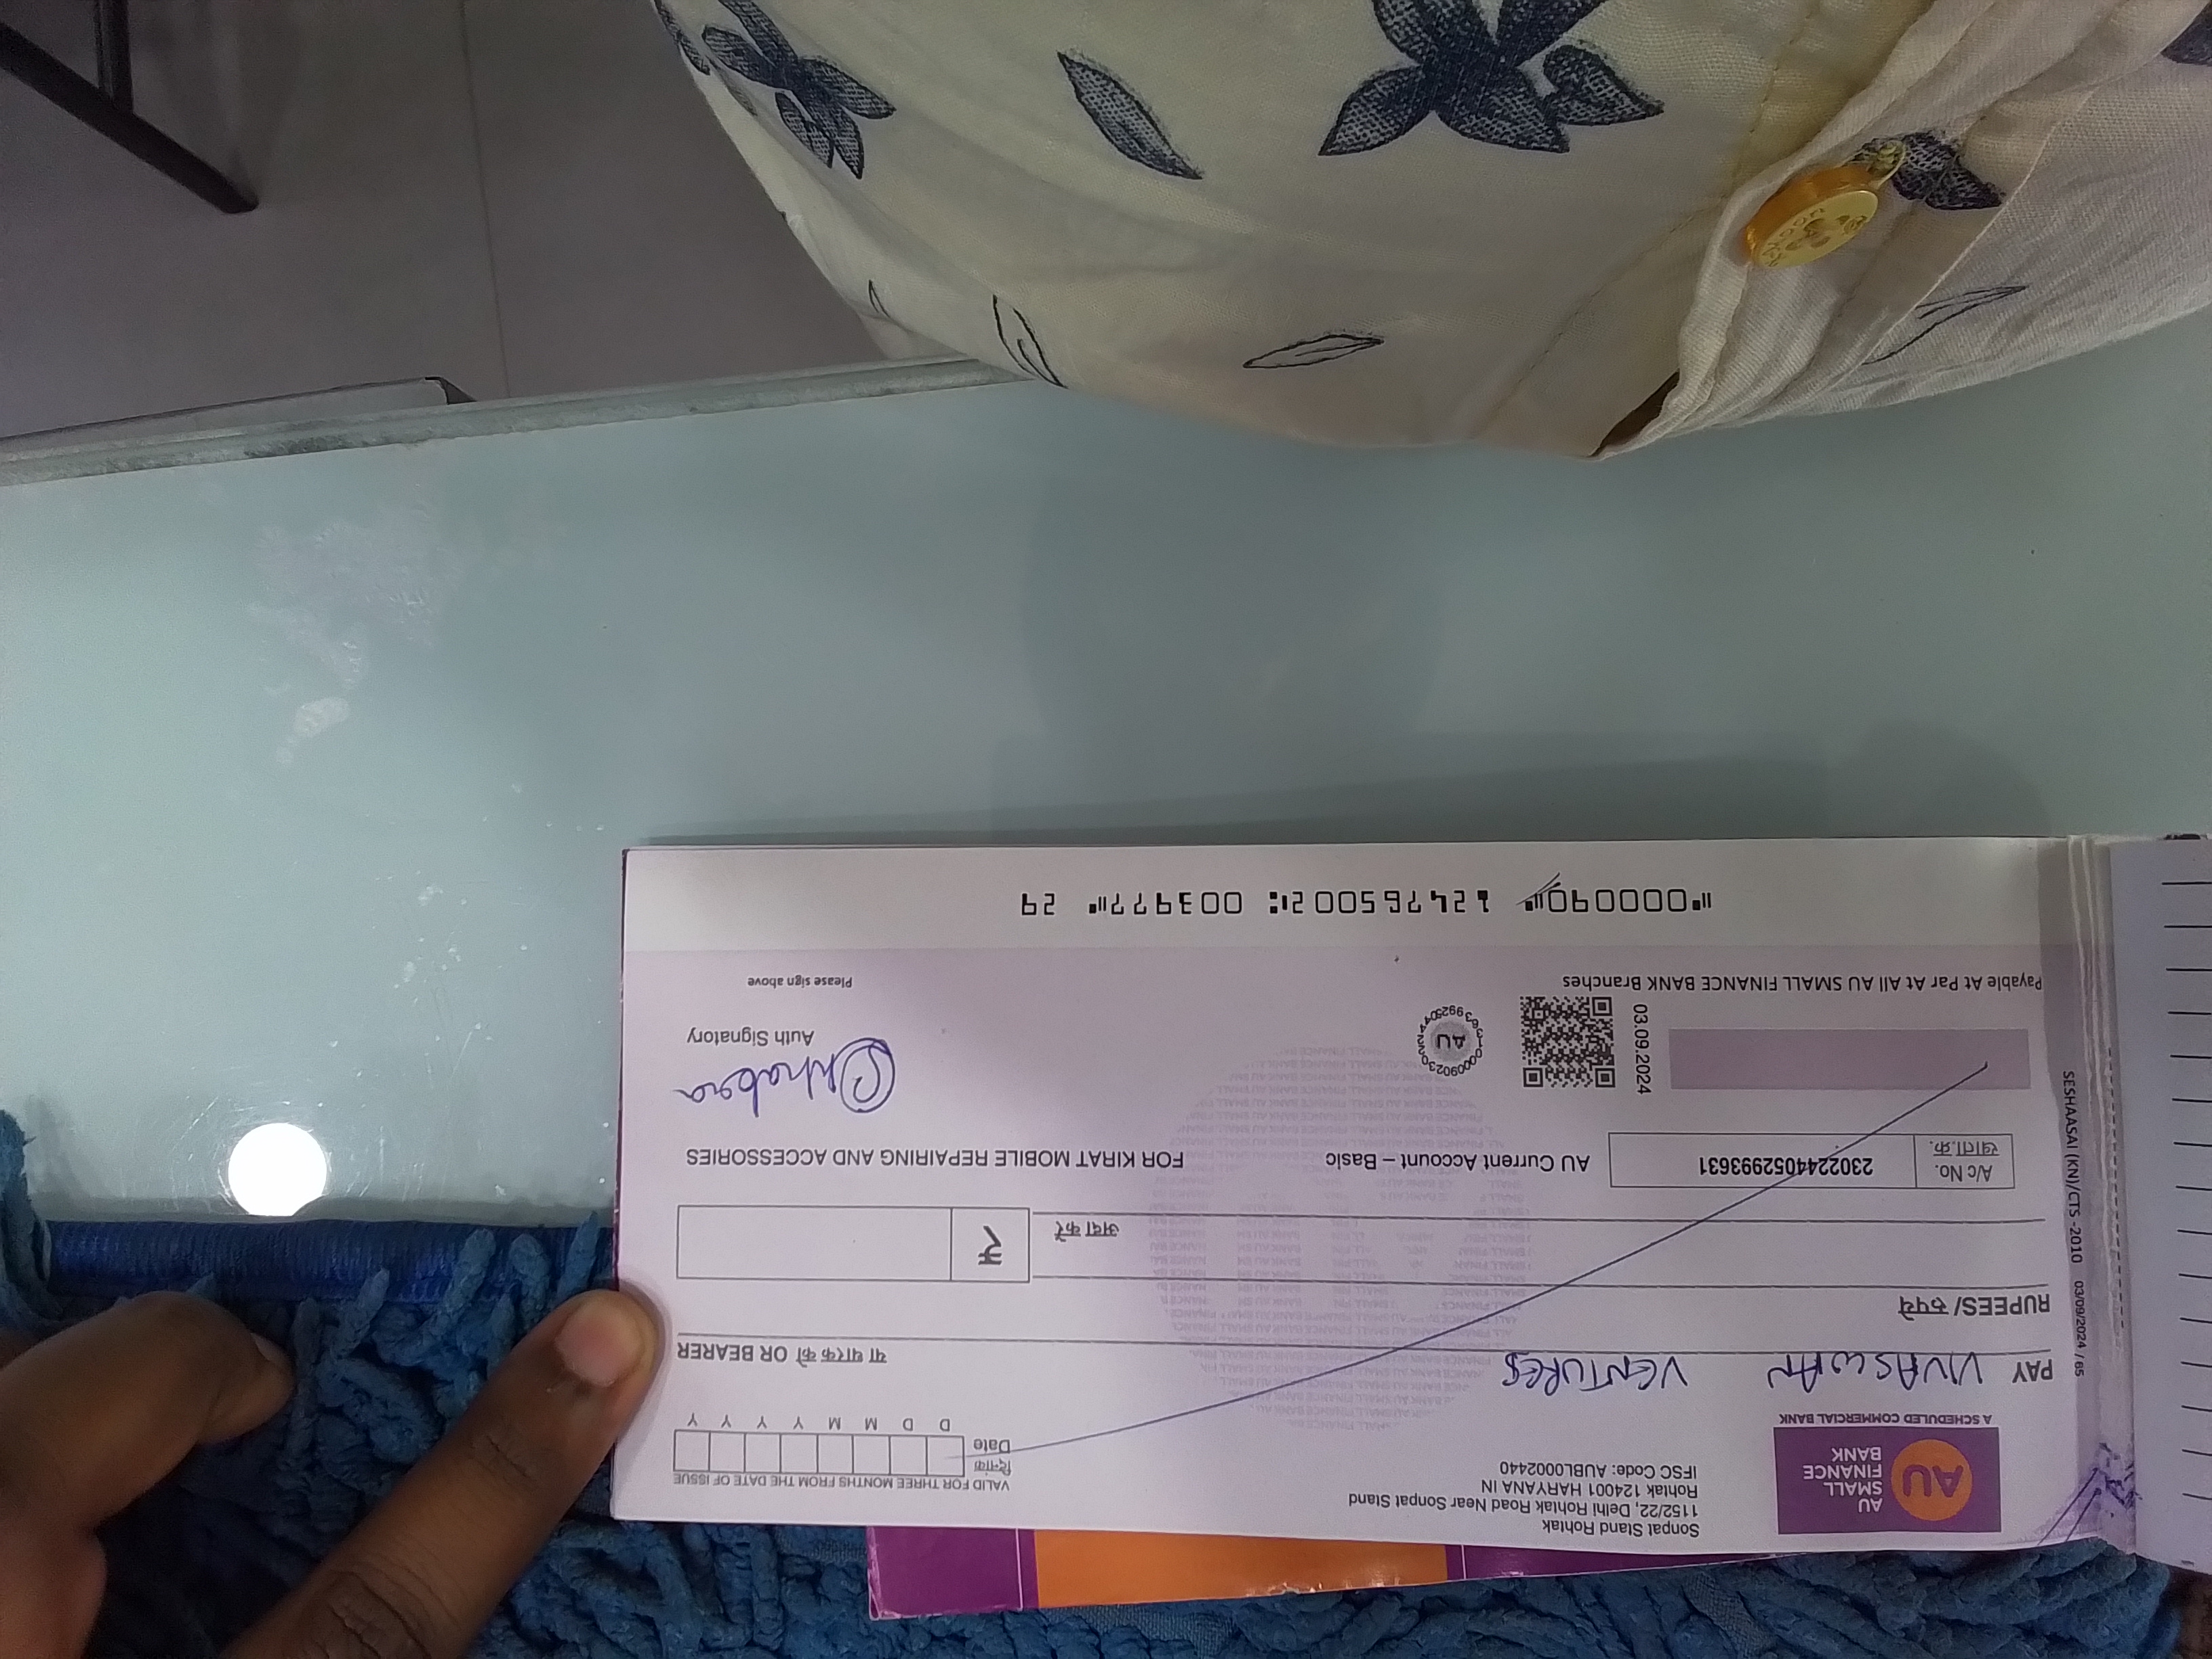 AU
AU
SMALL
FINANCE
BANK
A SCHEDULED COMMERCIAL BANK
Sonpat Stand Rohtak
1152/22, Delhi Rohtak Road Near Sonpat Stand
Rohtak 124001 HARYANA IN
IFSC Code: AUBL0002440
VALID FOR THREE MONTHS FROM THE DATE OF ISSUE
दिनांक
Date
D D M M Y Y Y Y
PAY VIVASWAN VENTURES
या धारक को OR BEARER
RUPEES/ रुपये
अदा करें ₹
A/c No.
खाता.क्र.
2302244052993631
AU Current Account – Basic
FOR KIRAT MOBILE REPAIRING AND ACCESSORIES
03.09.2024
AU
Chhabra
Auth Signatory
Please sign above
Payable At Par At All AU SMALL FINANCE BANK Branches
⑈000090⑈ 124765002⑆ 003977⑈ 29
SESHAASAI (KN)/CTS -2010 03/09/2024 / 65